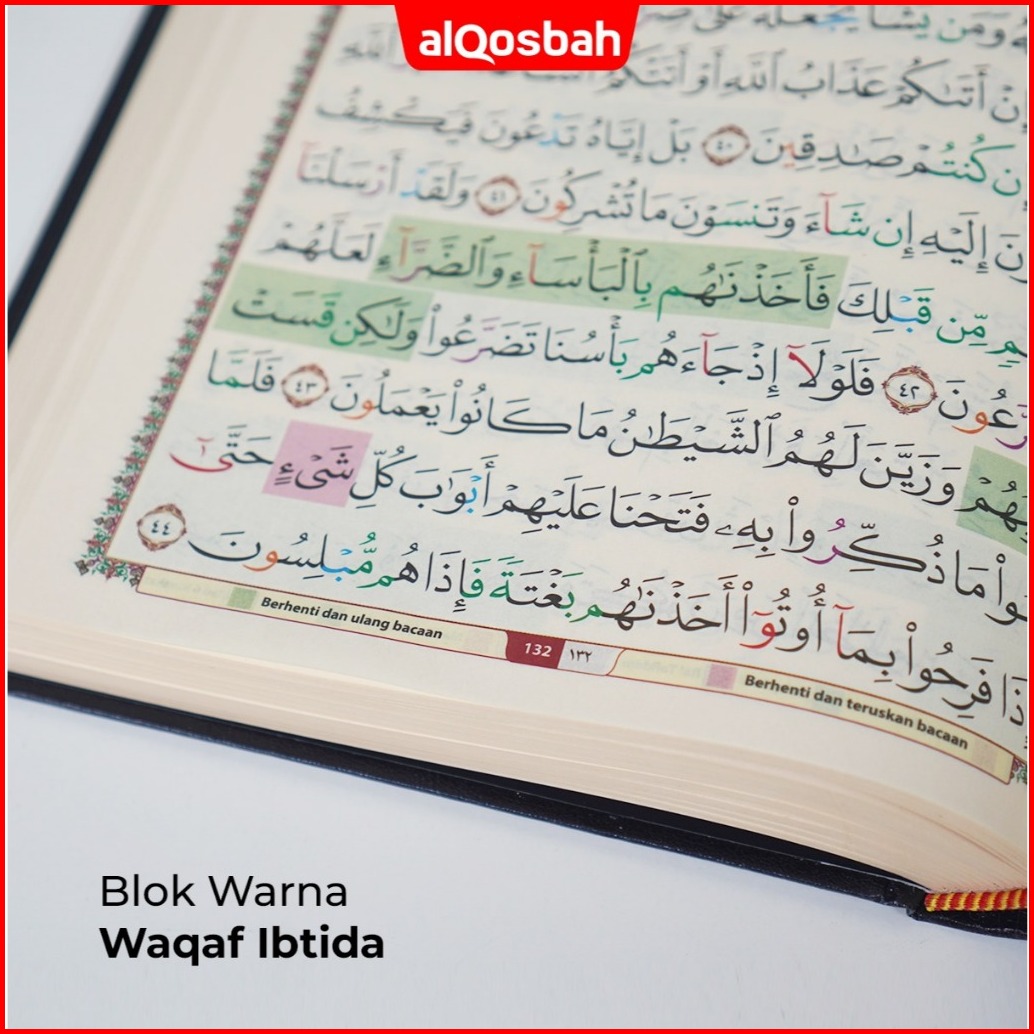 alQosbah
وَمَن يَشَأْ يَجْعَلْهُ عَلَىٰ
أَتَىٰكُمْ عَذَابُ ٱللَّهِ أَوْ أَتَتْكُمُ
كُنتُمْ صَـٰدِقِينَ ٤٠ بَلْ إِيَّاهُ تَدْعُونَ فَيَكْشِفُ
إِلَيْهِ إِن شَآءَ وَتَنسَوْنَ مَا تُشْرِكُونَ ٤١ وَلَقَدْ أَرْسَلْنَآ
مِّن قَبْلِكَ فَأَخَذْنَـٰهُم بِٱلْبَأْسَآءِ وَٱلضَّرَّآءِ لَعَلَّهُمْ
٤٢ فَلَوْلَآ إِذْ جَآءَهُم بَأْسُنَا تَضَرَّعُوا۟ وَلَـٰكِن قَسَتْ
وَزَيَّنَ لَهُمُ ٱلشَّيْطَـٰنُ مَا كَانُوا۟ يَعْمَلُونَ ٤٣ فَلَمَّا
مَا ذُكِّرُوا۟ بِهِۦ فَتَحْنَا عَلَيْهِمْ أَبْوَٰبَ كُلِّ شَىْءٍ حَتَّىٰٓ
فَرِحُوا۟ بِمَآ أُوتُوٓا۟ أَخَذْنَـٰهُم بَغْتَةً فَإِذَا هُم مُّبْلِسُونَ ٤٤
Berhenti dan ulang bacaan 132 ١٣٢ Berhenti dan teruskan bacaan
Blok Warna
Waqaf Ibtida